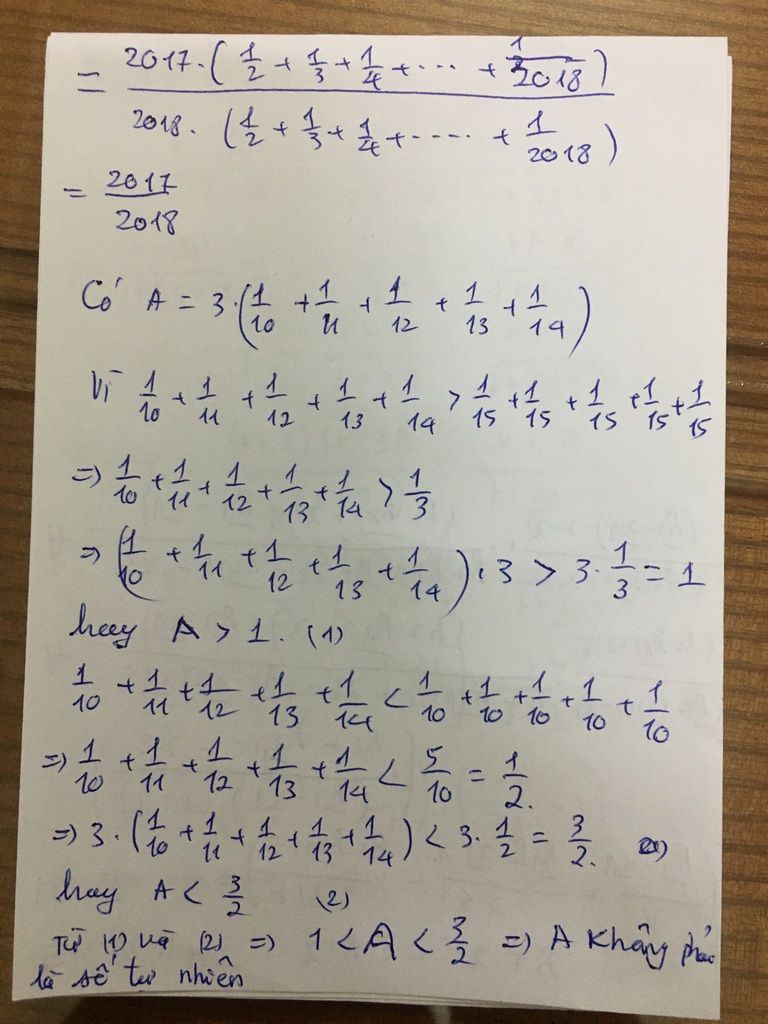 = 2017.(1/2 + 1/3 + 1/4 + ... + 1/2018) / 2018.(1/2 + 1/3 + 1/4 + ..... + 1/2018)
= 2017/2018
Có A = 3.(1/10 + 1/11 + 1/12 + 1/13 + 1/14)
Vì 1/10 + 1/11 + 1/12 + 1/13 + 1/14 > 1/15 + 1/15 + 1/15 + 1/15 + 1/15
=> 1/10 + 1/11 + 1/12 + 1/13 + 1/14 > 1/3
=> (1/10 + 1/11 + 1/12 + 1/13 + 1/14).3 > 3.1/3 = 1
hay A > 1. (1)
1/10 + 1/11 + 1/12 + 1/13 + 1/14 < 1/10 + 1/10 + 1/10 + 1/10 + 1/10
=> 1/10 + 1/11 + 1/12 + 1/13 + 1/14 < 5/10 = 1/2.
=> 3.(1/10 + 1/11 + 1/12 + 1/13 + 1/14) < 3.1/2 = 3/2.
hay A < 3/2 (2)
Từ (1) và (2) => 1 < A < 3/2 => A không phải
là số tự nhiên